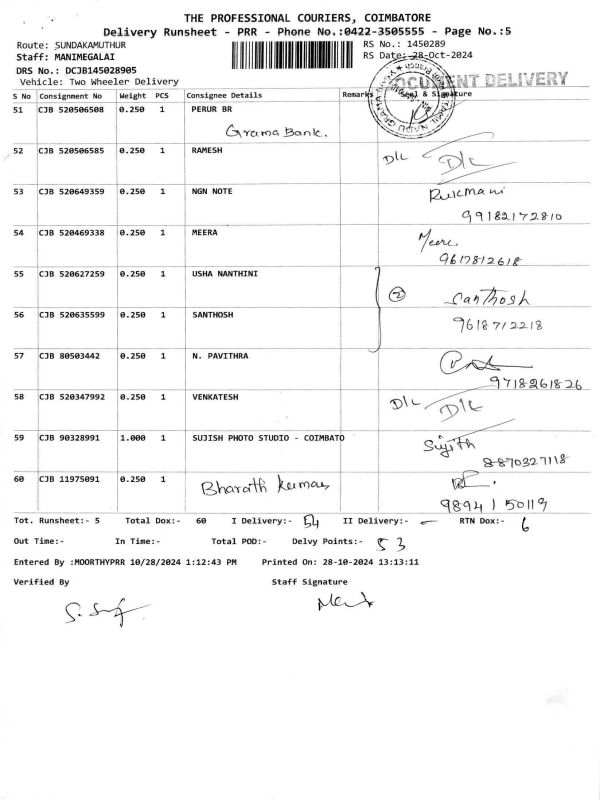 THE PROFESSIONAL COURIERS, COIMBATORE
Delivery Runsheet - PRR - Phone No.:0422-3505555 - Page No.:5
Route: SUNDAKAMUTHUR
RS No.: 1450289
Staff: MANIMEGALAI
RS Date: 28-Oct-2024
DRS No.: DCJB145028905
Vehicle: Two Wheeler Delivery
DOCUMENT DELIVERY
S No Consignment No Weight PCS Consignee Details Remarks Seal & Signature
51 CJB 520506508 0.250 1 PERUR BR
Grama Bank.
52 CJB 520506585 0.250 1 RAMESH D/L D/L
53 CJB 520649359 0.250 1 NGN NOTE Rukmani
99182172810
54 CJB 520469338 0.250 1 MEERA Meera
9617812618
55 CJB 520627259 0.250 1 USHA NANTHINI
2 Santhosh
56 CJB 520635599 0.250 1 SANTHOSH 9618712218
57 CJB 80503442 0.250 1 N. PAVITHRA
9718261826
58 CJB 520347992 0.250 1 VENKATESH D/L D/L
59 CJB 90328991 1.000 1 SUJISH PHOTO STUDIO - COIMBATO Sujith
8870327118
60 CJB 11975091 0.250 1 Bharath Kumar
98941 50119
Tot. Runsheet:- 5 Total Dox:- 60 I Delivery:- 54 II Delivery:- - RTN Dox:- 6
Out Time:- In Time:- Total POD:- Delvy Points:- 53
Entered By :MOORTHYPRR 10/28/2024 1:12:43 PM Printed On: 28-10-2024 13:13:11
Verified By Staff Signature